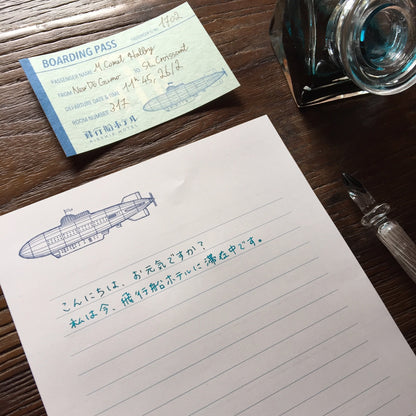 BOARDING PASS
PASSENGER'S NO. 1702
PASSENGER NAME M.Camel Hallory
FROM New Do Guimo TO St. Croissant
DEPARTURE DATE & TIME 11:45, 26/2
ROOM NUMBER 217
飛行船ホテル
AIRSHIP HOTEL
こんにちは、お元気ですか?
私は今、飛行船ホテルに滞在中です。